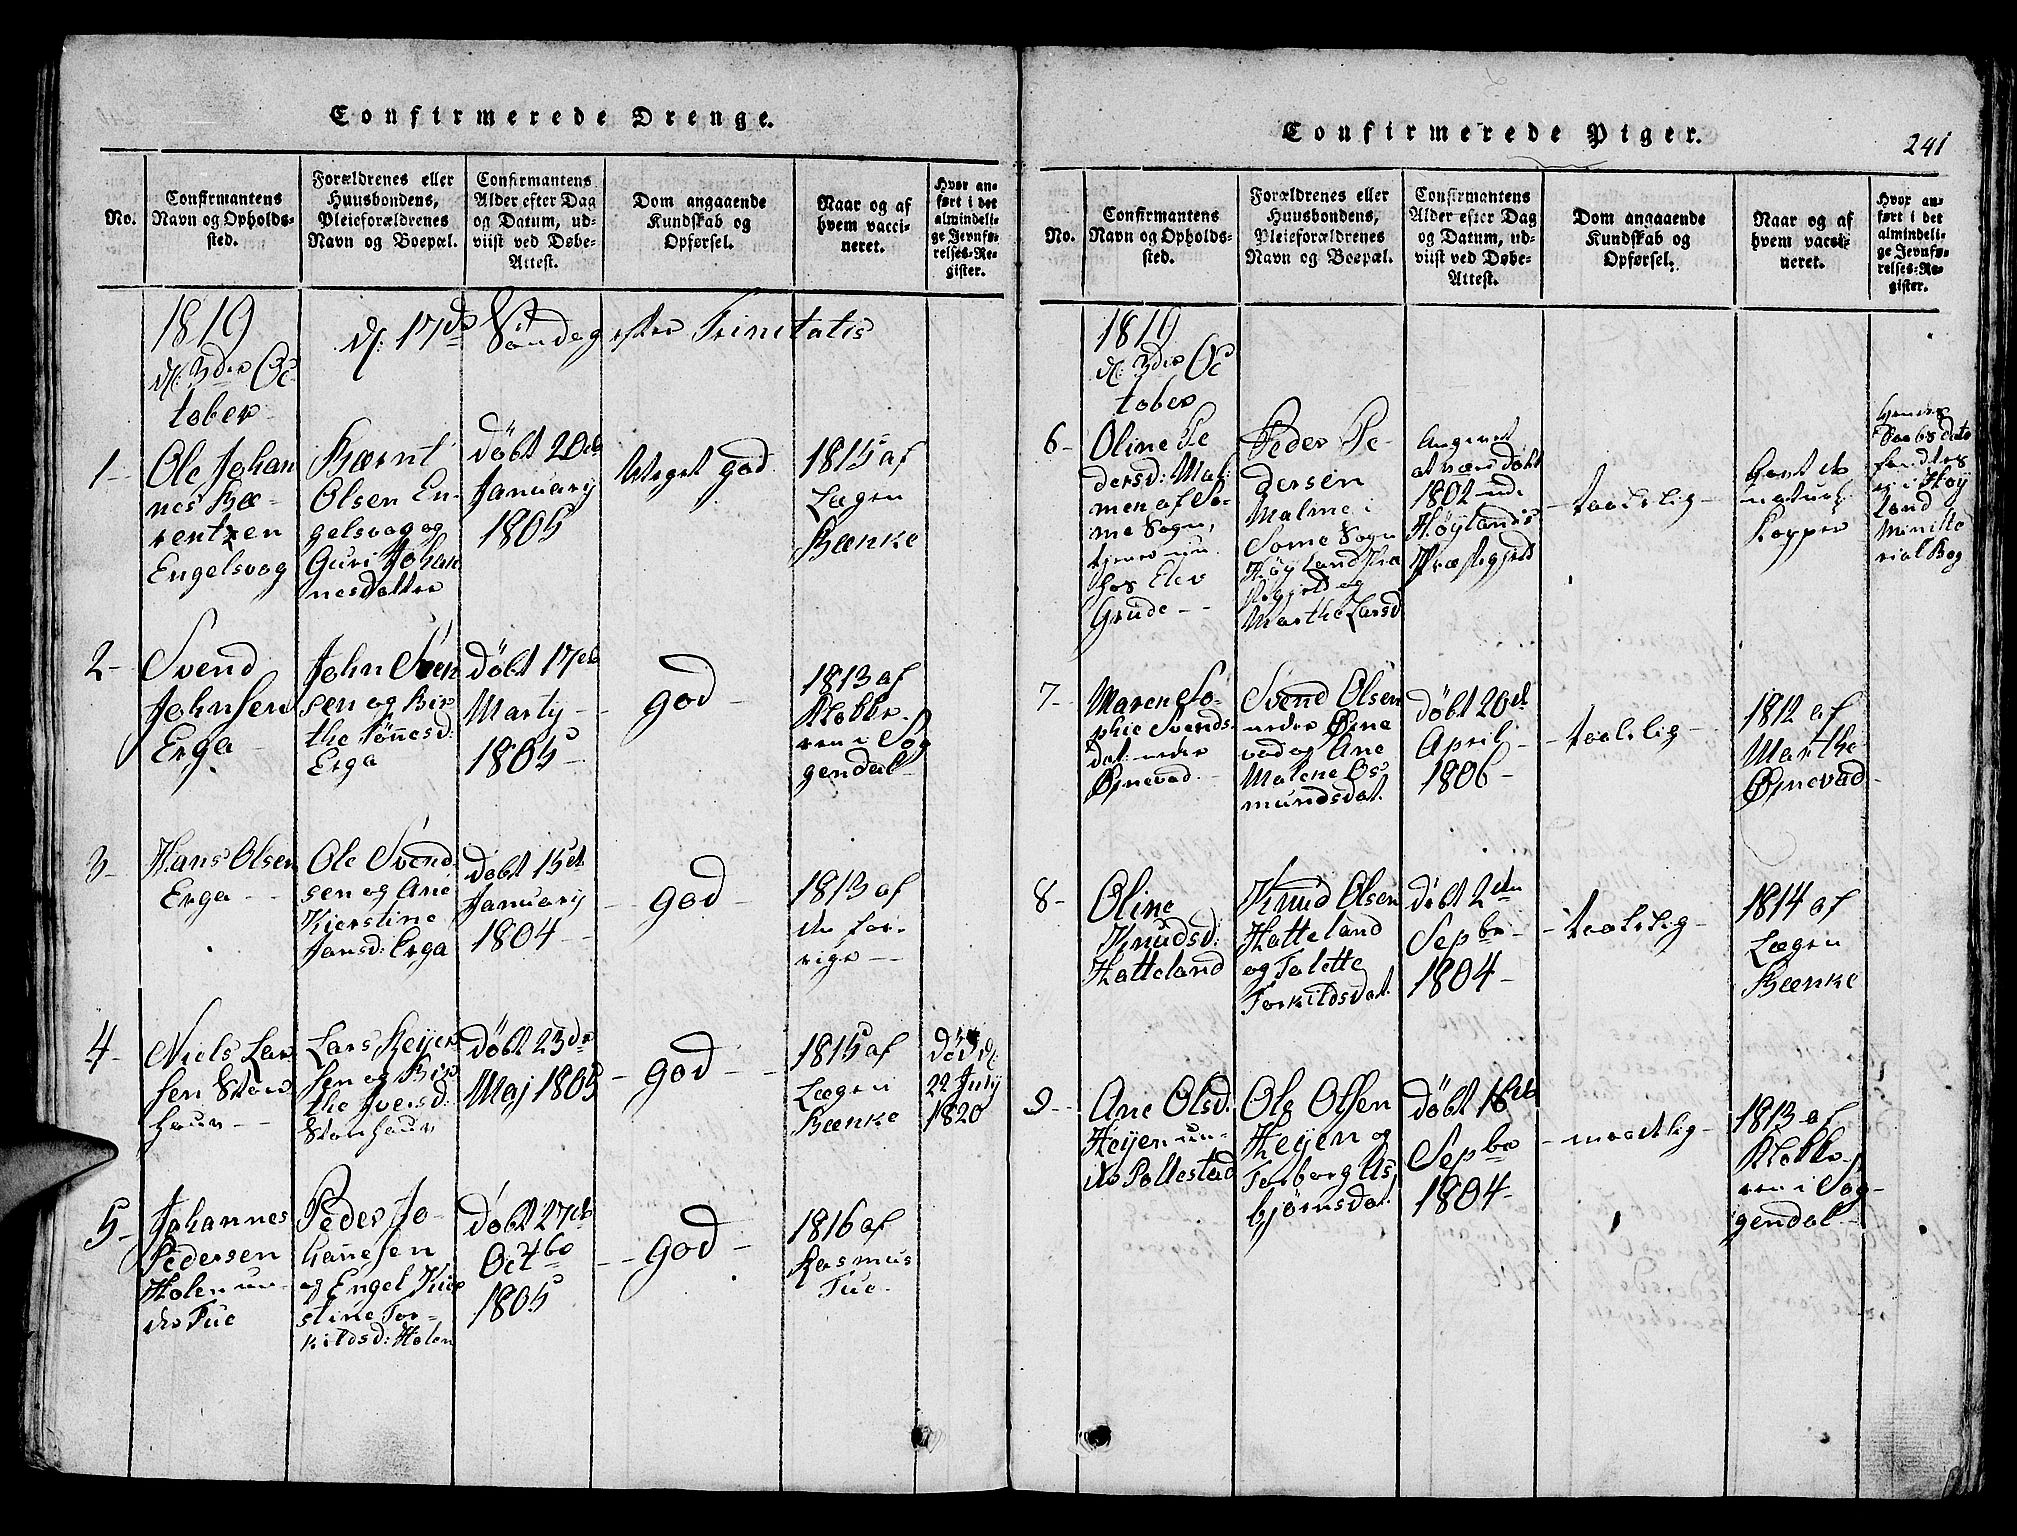 Confirmerede Drenge.
No.
Confirmantens
Navn og Opholds-
sted.
Forældrenes eller
Huusbondens,
Pleieforældrenes
Navn og Boepæl.
Confirmantens
Alder efter Dag
og Datum, ud-
viist ved Døbe-
Attest.
Dom angaaende
Kundskab og
Opførsel.
Naar og af
hvem vacci-
neret.
Hvor an-
ført i det
almindeli-
ge Jevnfø-
relses-Re-
gister.
1819
d: 3die Oc
tober
d: 17de Søndag efter Trinitatis
1-
Ole Johan
nes Bæ-
rentzen
Engelsvog
Bærnt
Olsen En-
gelsvog og
Guri Johan
nesdatter
Døbt 20de
Januarij
1805
Meget god
1815 af
Lægen
Bænke
2-
Svend
Johnsen
Erga
John Sven
sen og Bir
the Tönnesd:
Erga
Døbt 17de
Martij
1805
god
1813 af
Klokke-
ren i Sog
gendal
3-
Hans Olsen
Erga
Ole Svend-
sen og Ane
Kierstine
Jansd: Erga
Døbt 15de
Januarij
1804
god
1813 af
den for-
rige
4-
Niels Lar
sen Sten
houv
Lars Reijer
sen og Bir
the Iversd:
Stenhouv
Døbt 23de
Maj 1805
god
1815 af
Lægen
Bænke
Død d:
22 July
1820
5-
Johannes
Pedersen
Holen un-
der Tue
Peder Jo-
hannesen
og Engel Kier
stine Tor-
kildsd: Holen
Døbt 27de
Octbe
1805
god
1816 af
Rasmus
Tue
Confirmerede Piger.
241
No.
Confirmantens
Navn og Opholds-
sted.
Forældrenes eller
Huusbondens,
Pleieforældrenes
Navn og Boepæl.
Confirmantens
Alder efter Dag
og Datum, ud-
viist ved Døbe-
Attest.
Dom angaaende
Kundskab og
Opførsel.
Naar og af
hvem vacci-
neret.
Hvor an-
ført i det
almindeli-
ge Jevnfø-
relses-Re-
gister.
1819
d: 3die Oc
tober
6-
Oline Pe
dersd: Mal
men af So-
me Sogn,
tjener nu
hos Elev
Grude
Peder Pe-
dersen
Malme i
Some Sogn
Høyland Præ
stegjeld og
Marthe Larsd
Angivet
at være døbt
1802 udi
Høylands
Præstegjeld
taalelig
havt de
naturl:
Kopper
hendes
Daabs Dato
findes
ej i Høy
land
Ministe
rial Bog
7-
Maren So-
phie Svends-
dat: nedre
Øinevad
Svend Olsen
nedre Øine
vad og Ane
Malene Os
mundsdat.
Døbt 20de
April
1806
taalelig
1812 af
Marthe
Øinevad
8-
Oline
Knudsd:
Hatteland
Knud Olsen
Hatteland
og Talette
Torkildsdat.
Døbt 2den
Sepbe
1804
taalelig
1814 af
Lægen
Bænke
9-
Ane Olsd:
Heijen un-
der Pollestad
Ole Olsen
Heijen og
Torborg As
bjørnsdat.
Døbt 16de
Sepbe
1804
maadelig
1813 af
Klokke-
ren i Sog-
gendal